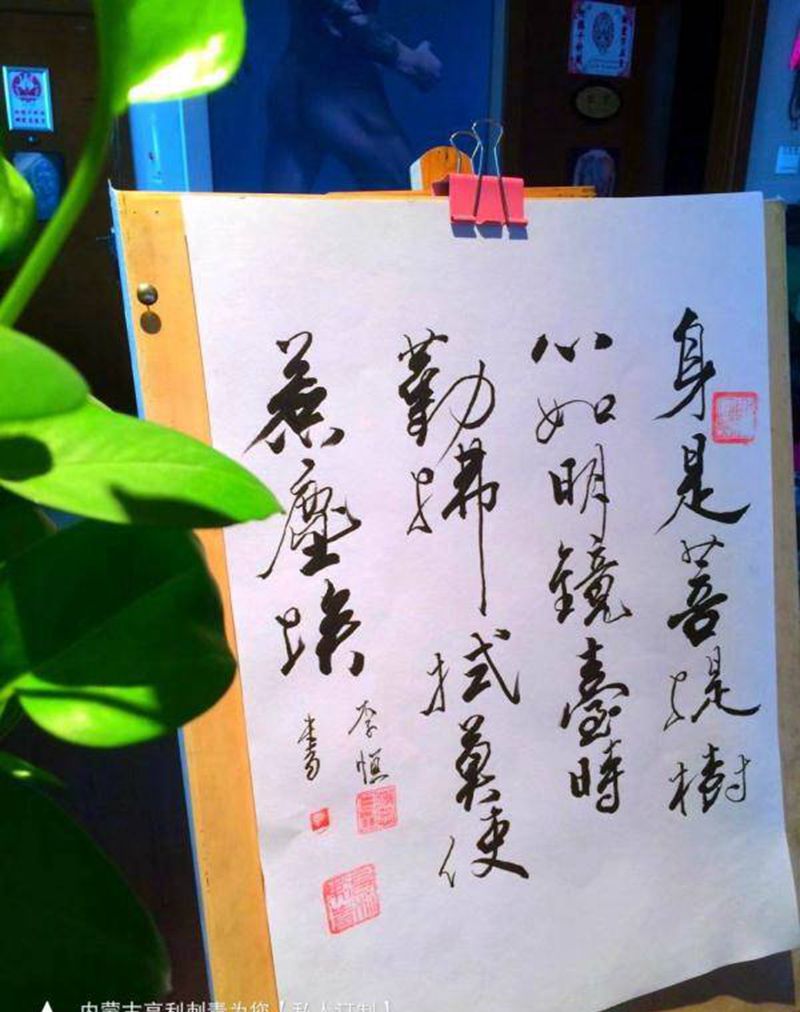 身是菩提樹
心如明鏡臺時
勤拂拭莫使
惹塵埃
李慎
書
内蒙古亨利刺青为您【私人订制】